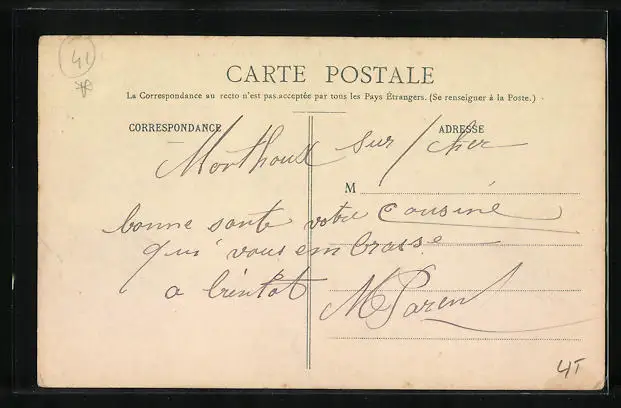 41
CARTE POSTALE
La Correspondance au recto n'est pas acceptée par tous les Pays Étrangers. (Se renseigner à la Poste.)
CORRESPONDANCE
ADRESSE
Monthoux sur / Cher
M
bonne sante votre cousine
qui vous embrasse
a bientot
M Parent